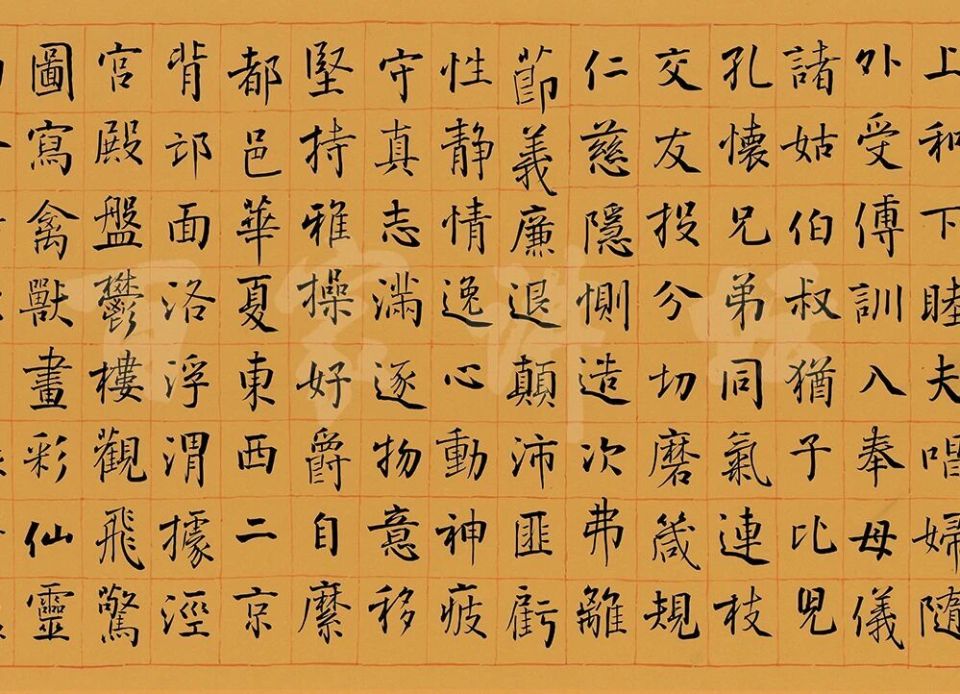 上和下睦夫唱婦隨
外受傅訓入奉母儀
諸姑伯叔猶子比兒
孔懷兄弟同氣連枝
交友投分切磨箴規
仁慈隱惻造次弗離
節義廉退顛沛匪虧
性靜情逸心動神疲
守真志滿逐物意移
堅持雅操好爵自縻
都邑華夏東西二京
背邙面洛浮渭據涇
宮殿盤鬱樓觀飛驚
圖寫禽獸畫彩仙靈